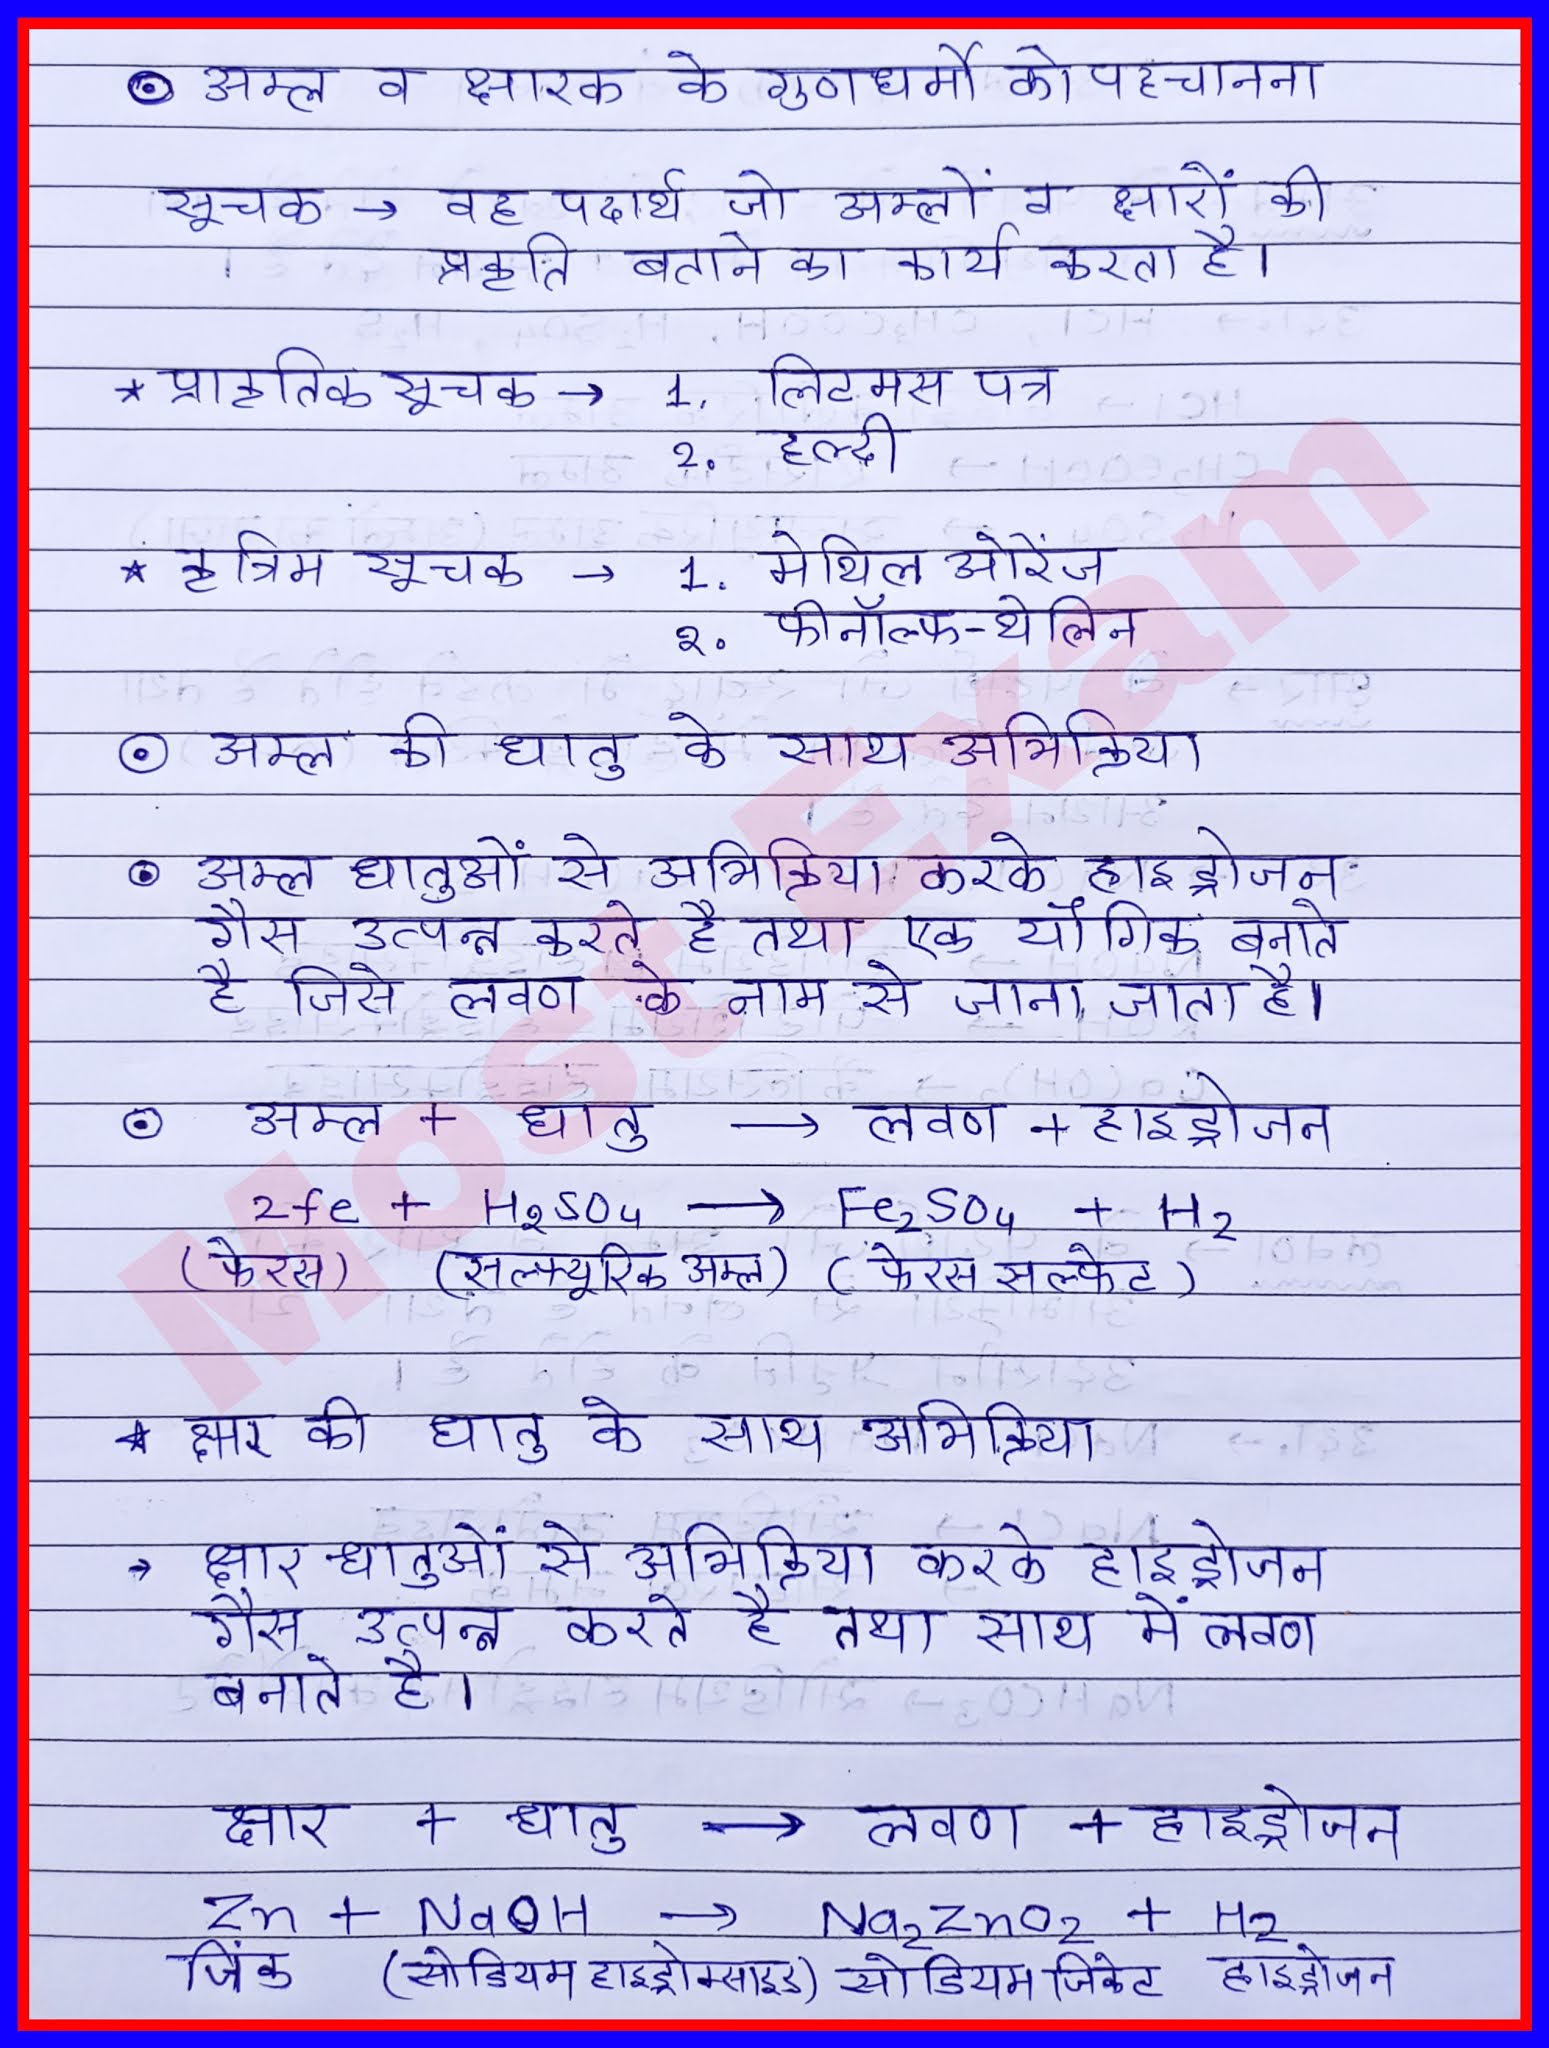 अम्ल व क्षारक के गुणधर्मो को पहचानना
सूचक → वह पदार्थ जो अम्लों व क्षारों की
प्रकृति बताने का कार्य करता है।
* प्राकृतिक सूचक → 1. लिटमस पत्र
2. हल्दी
* कृत्रिम सूचक → 1. मेथिल ओरेंज
2. फीनॉल्फ-थेलिन
अम्ल की धातु के साथ अभिक्रिया
अम्ल धातुओं से अभिक्रिया करके हाइड्रोजन
गैस उत्पन्न करते है तथा एक यौगिक बनाते
है जिसे लवण के नाम से जाना जाता है।
अम्ल + धातु → लवण + हाइड्रोजन
2fe + H2SO4 → Fe2SO4 + H2
(फेरस) (सल्फ्यूरिक अम्ल) (फेरस सल्फेट)
* क्षार की धातु के साथ अभिक्रिया
→ क्षार धातुओं से अभिक्रिया करके हाइड्रोजन
गैस उत्पन्न करते है तथा साथ में लवण
बनाते है।
क्षार + धातु → लवण + हाइड्रोजन
Zn + NaOH → Na2ZnO2 + H2
जिंक (सोडियम हाइड्रोक्साइड) सोडियम जिंकेट हाइड्रोजन
Most Exam